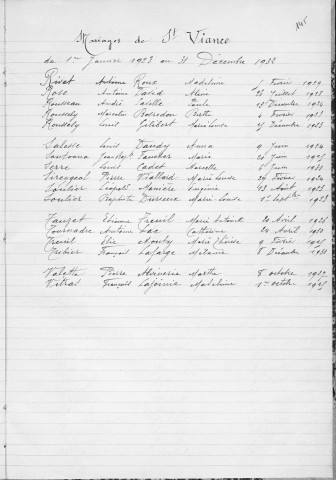 145
Mariages de St Viance
du 1er Janvier 1923 au 31 Décembre 1932
Rivet Antoine Roux Madeleine 1 Février 1929
Rose Antoine David Aline 23 Juillet 1928
Rousseau André Lasalle Paule 13 Décembre 1924
Roussely Marcelin Bosredon Berthe 4 Février 1923
Roussely Louis Jalibert Marie Louise 27 Décembre 1923
Salesse Louis Dauby Anna 9 Juin 1924
Faucher Marie 20 Juin
Terre Louis Cadet Marcelle 6 Juin 1931
Pierre Viallard Marie Louise 24 Février 1924
Soulier Léopold Manière Eugénie 13 Août 1923
Soulier Baptiste Marie Louise 1er Septbre
Tauzet Etienne Treuil Marie Antoinette 20 Avril 1926
Tournadre Antoine Lac Catherine 28 Avril 1930
Treuil Elie Marie Thérèse 9 Février
Trebier François Lafarge Mélanie 8 Décembre 1931
Valette Pierre Marthe 8 octobre 1927
Vitrac François Lajoinie Madeleine 1er octobre